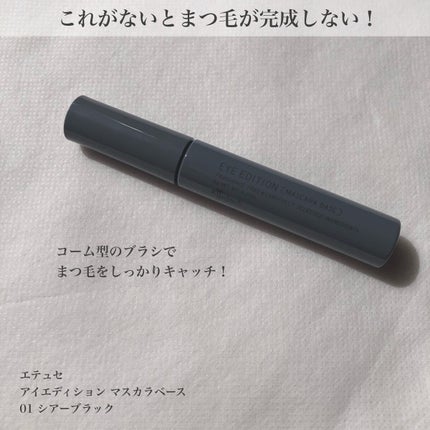 これがないとまつ毛が完成しない！
EYE EDITION [MASCARA BASE]
コーム型のブラシで
まつ毛をしっかりキャッチ！
エテュセ
アイエディション マスカラベース
01 シアーブラック